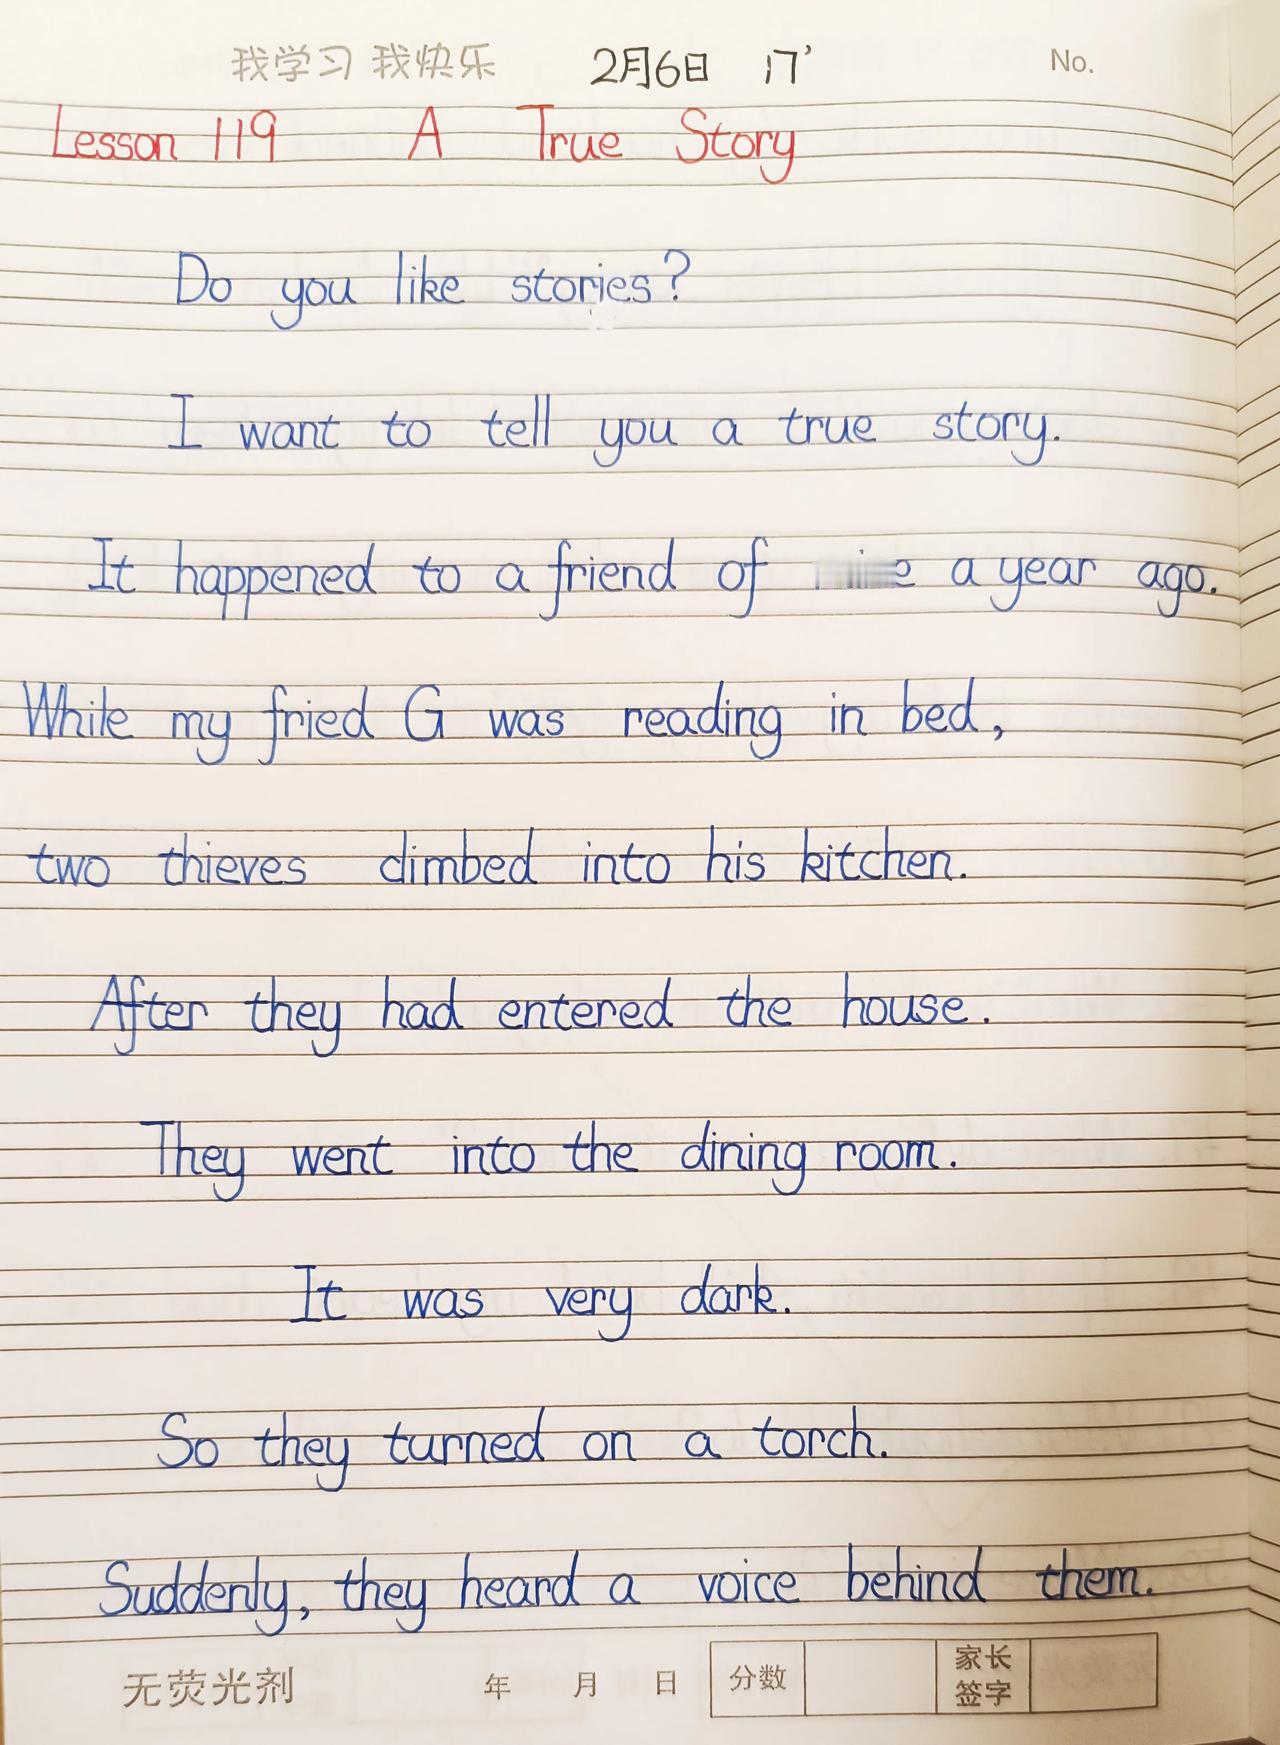 我学习 我快乐 2月6日 17' No.
Lesson 119 A True Story
Do you like stories?
I want to tell you a true story.
It happened to a friend of a year ago.
While my fried G was reading in bed,
two thieves climbed into his kitchen.
After they had entered the house.
They went into the dining room.
It was very dark.
So they turned on a torch.
Suddenly, they heard a voice behind them.
无荧光剂 年 月 日 分数 家长签字